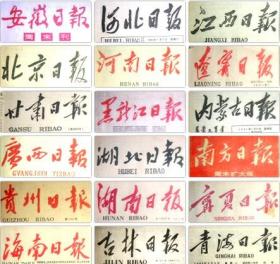 安徽日报
周末刊
河北日报
HEBEI RIBAO
江西日报
JIANGXI RIBAO
北京日报
河南日报
HENAN RIBAO
遼寧日報
LIAONING RIBAO
甘肃日报
GANSU RIBAO
黑龙江日報
内蒙古日报
廣西日报
GUANGXI RIBAO
湖北日報
HUBEI RIBAO
南方日報
周末扩大版
贵州日报
GUIZHOU RIBAO
湖南日报
HUNAN RIBAO
寧夏日报
NINGXIA RIBAO
海南日报
HAINAN RIBAO
吉林日报
JILIN RIBAO
青海日報
QINGHAI RIBAO